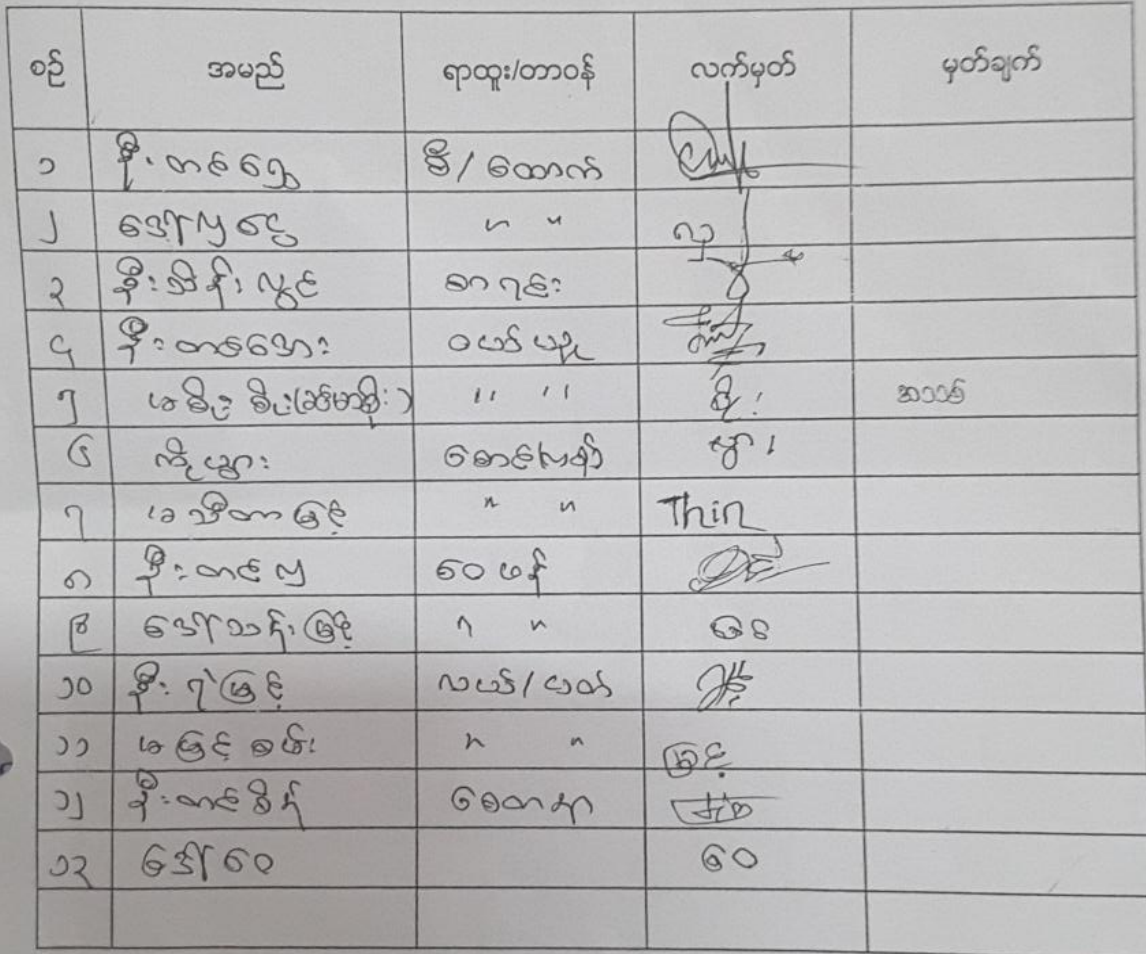 စဉ် အမည် ရာထူး/တာဝန် လက်မှတ် မှတ်ချက်
၁ ဦးတင်ရွှေ စီ/ထောက်
၂ ဒေါ်လှငွေ " " လှ
၃ ဦးသိန်းလွင် စာရင်း
၄ ဦးတင်အေး ဝယ်ယူ
၅ မစိုးစိုး " " စိုး အသစ်
၆ ကိုယွား ယွား
၇ မသီတာမြင့် " " Thin
၈ ဦးတင်လှ ဝေဖန်
၉ ဒေါ်သန်းမြင့် " "
၁၀ ဦးရဲမြင့် လယ်/ယာ
၁၁ မမြင့်စမ်း " " မြင့်
၁၂ ဦးတင်စိန် စေတနာ
၁၃ ဒေါ်ဝေ ဝေ